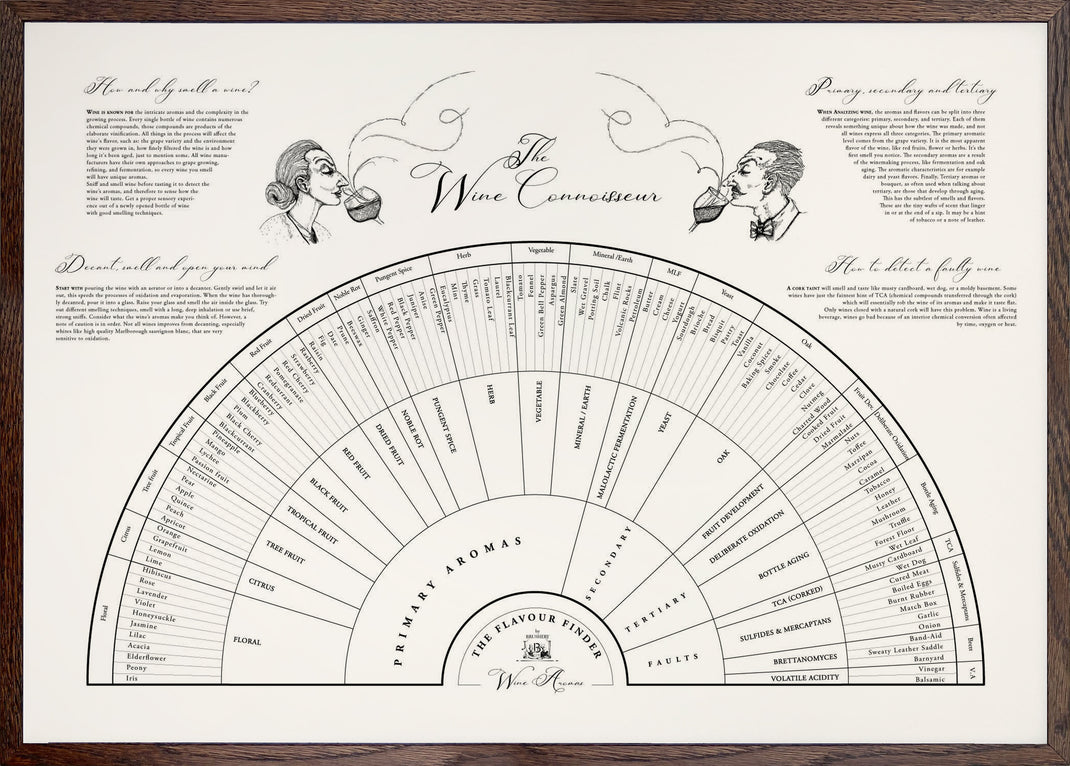 How and why smell a wine?
WINE IS KNOWN FOR the intricate aromas and the complexity in the
growing process. Every single bottle of wine contains numerous
chemical compounds, those compounds are products of the
elaborate vinification. All things in the process will affect the
wine's flavor, such as: the grape variety and the environment
they were grown in, how finely filtered the wine is and how
long it's been aged, just to mention some. All wine manu-
facturers have their own approaches to grape growing,
refining, and fermentation, so every wine you smell
will have unique aromas.
Sniff and smell wine before tasting it to detect the
wine's aromas, and therefore to sense how the
wine will taste. Get a proper sensory experi-
ence out of a newly opened bottle of wine
with good smelling techniques.
The
Wine Connoisseur
Primary, secondary and tertiary
WHEN ANALYZING WINE, the aromas and flavors can be split into three
different categories: primary, secondary, and tertiary. Each of them
reveals something unique about how the wine was made, and not
all wines express all three categories. The primary aromatic
level comes from the grape variety. It is the most apparent
flavor of the wine, like red fruits, flower or herbs. It's the
first smell you notice. The secondary aromas are a result
of the winemaking process, like fermentation and oak
aging. The aromatic characteristics are for example
dairy and yeast flavors. Finally. Tertiary aromas or
bouquet, as often used when talking about
tertiary, are those that develop through aging.
This has the subtlest of smells and flavors.
These are the tiny wafts of scent that linger
in or at the end of a sip. It may be a hint
of tobacco or a note of leather.
Decant, smell and open your mind
START WITH pouring the wine with an aerator or into a decanter. Gently swirl and let it air
out, this speeds the processes of oxidation and evaporation. When the wine has thorough-
ly decanted, pour it into a glass. Raise your glass and smell the air inside the glass. Try
out different smelling techniques, smell with a long, deep inhalation or use brief,
strong sniffs. Consider what the wine's aromas make you think of. However, a
note of caution is in order. Not all wines improves from decanting, especially
whites like high quality Marlborough sauvignon blanc, that are very
sensitive to oxidation.
How to detect a faulty wine
A CORK TAINT will smell and taste like musty cardboard, wet dog, or a moldy basement. Some
wines have just the faintest hint of TCA (chemical compounds transferred through the cork)
which will essentially rob the wine of its aromas and make it taste flat.
Only wines closed with a natural cork will have this problem. Wine is a living
beverage, wines go bad because of an interior chemical conversion often affected
by time, oxygen or heat.
Floral
Citrus
Tree fruit
Tropical Fruit
Black Fruit
Red Fruit
Dried Fruit
Noble Rot
Pungent Spice
Herb
Vegetable
Mineral /Earth
MLF
Yeast
Oak
Fruit Dev.
Deliberate Oxidation
Bottle Aging
TCA
Sulfides & Mercaptans
Brett
V.A
Iris
Peony
Elderflower
Acacia
Lilac
Jasmine
Honeysuckle
Violet
Lavender
Rose
Hibiscus
Lime
Lemon
Grapefruit
Orange
Apricot
Peach
Quince
Apple
Pear
Nectarine
Passion fruit
Lychee
Mango
Pineapple
Blackcurrant
Black Cherry
Plum
Blackberry
Blueberry
Cranberry
Redcurrant
Pomegranate
Red Cherry
Strawberry
Raspberry
Raisin
Fig
Date
Prune
Beeswax
Ginger
Saffron
White Pepper
Red Pepper
Black Pepper
Juniper
Anise
Green Pepper
Eucalyptus
Mint
Thyme
Grass
Tomato Leaf
Laurel
Blackcurrant Leaf
Tomato
Fennel
Green Bell Pepper
Aspargus
Green Almond
Slate
Wet Gravel
Potting Soil
Chalk
Flint
Volcanic Rocks
Petroleum
Butter
Cream
Cheese
Yogurt
Sourdough
Brioche
Bread
Bisquit
Pastry
Toast
Vanilla
Coconut
Baking Spices
Smoke
Chocolate
Coffee
Cedar
Clove
Nutmeg
Charred Wood
Cooked Fruit
Dried Fruit
Marmalade
Nuts
Toffee
Marzipan
Cocoa
Caramel
Tobacco
Honey
Leather
Mushroom
Truffle
Forest Floor
Wet Leaf
Musty Cardboard
Wet Dog
Cured Meat
Boiled Eggs
Burnt Rubber
Match Box
Garlic
Onion
Band-Aid
Sweaty Leather Saddle
Barnyard
Vinegar
Balsamic
FLORAL
CITRUS
TREE FRUIT
TROPICAL FRUIT
BLACK FRUIT
RED FRUIT
DRIED FRUIT
NOBLE ROT
PUNGENT SPICE
HERB
VEGETABLE
MINERAL / EARTH
MALOLACTIC FERMENTATION
YEAST
OAK
FRUIT DEVELOPMENT
DELIBERATE OXIDATION
BOTTLE AGING
TCA (CORKED)
SULFIDES & MERCAPTANS
BRETTANOMYCES
VOLATILE ACIDITY
PRIMARY AROMAS
SECONDARY
TERTIARY
FAULTS
THE FLAVOUR FINDER
by
Wine Aromas